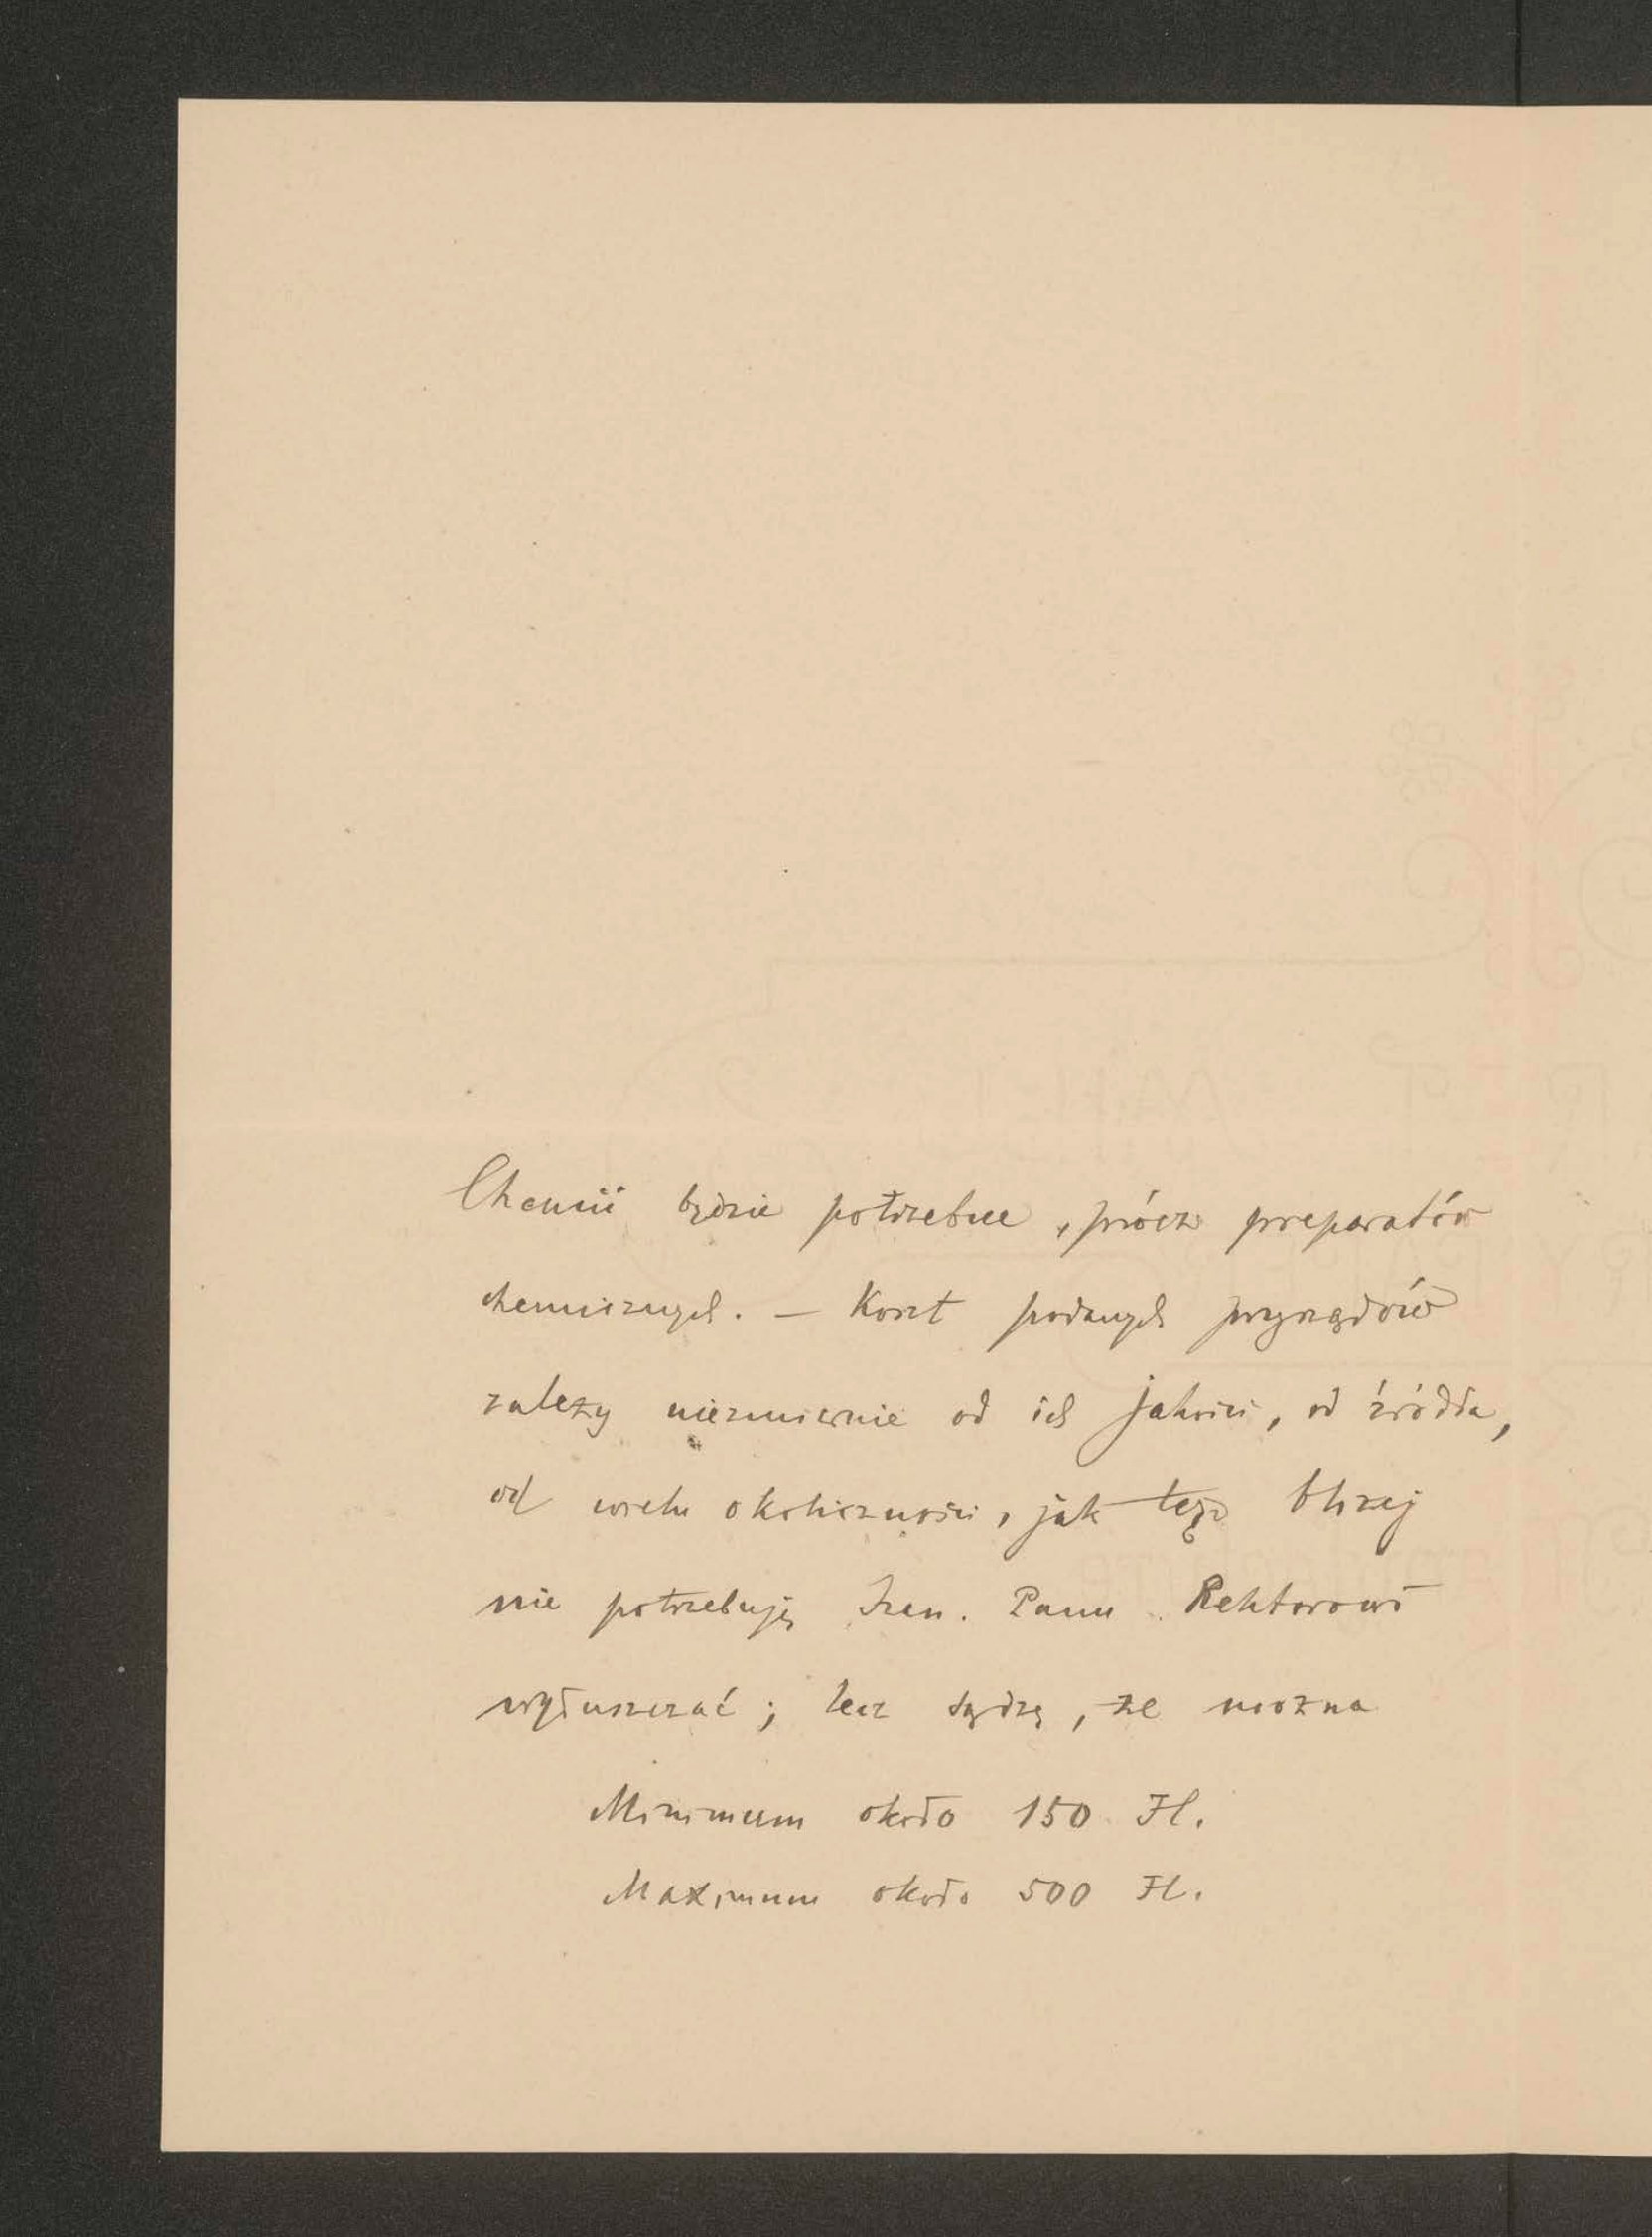 Chemii będzie potrzebne, prócz preparatów
chemicznych. — Koszt podanych przyrządów
zależy niezmiernie od ich jakości, od źródła,
od wielu okoliczności, jak tego bliżej
nie potrzebuję Szan. Panu Rektorowi
wyłuszczać; lecz sądzę, że można
Minimum około 150 Fl.
Maximum około 500 Fl.